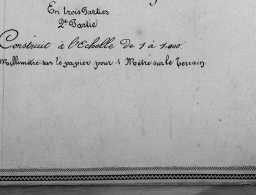 En trois Parties
2e Partie
Construit à l'Echelle de 1 à 1.000
Millimètre sur le papier pour 1 Mètre sur le Terrain